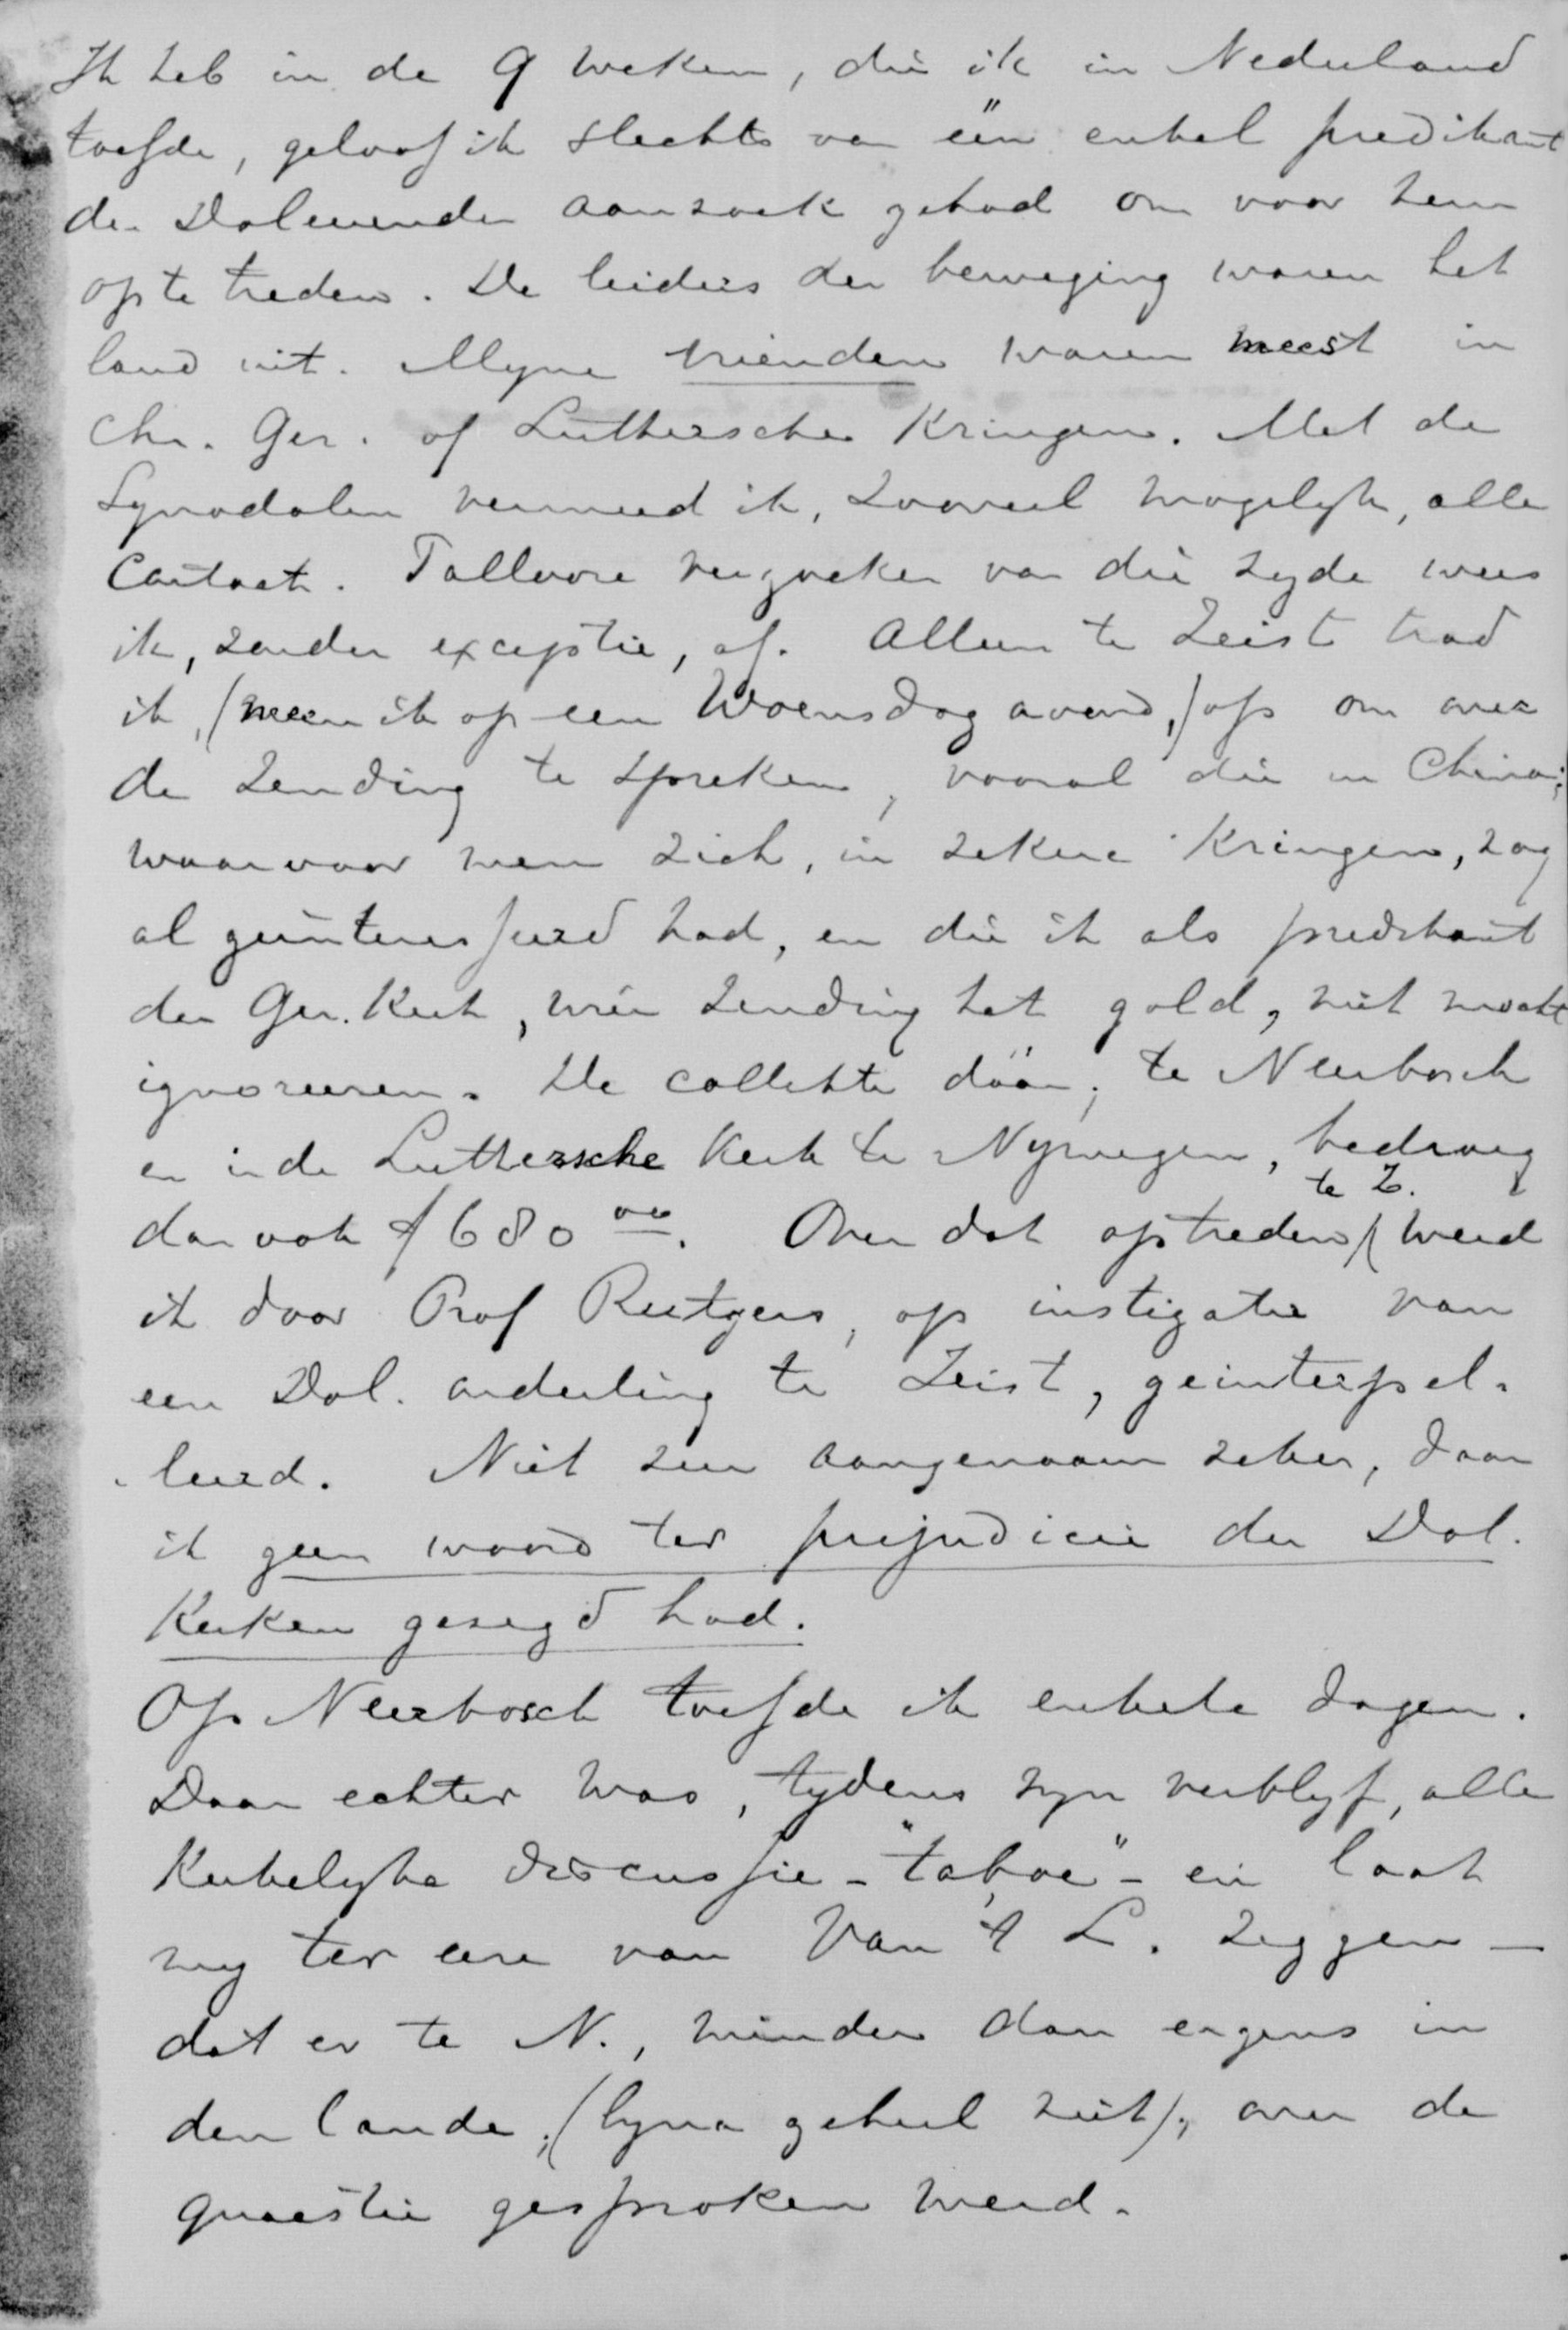 Ik heb in de 9 weken, die ik in Nederland
toefde, geloof ik slechts van één enkel predikant
der Doleerenden aanzoek gehad om voor hem
op te treden. De leiders der beweging waren het
land uit. Myne vrienden waren meest in
Chr. Ger. of Luthersche Kringen. Met de
Synodalen vermeed ik, zooveel mogelyk, alle
Contact. Tallooze verzoeken van die zyde wees
ik, zonder exceptie, af. Alleen te Zeist trad
ik, (meen ik op een Woensdag avond,) op om over
de Zending te spreken, vooral die in China;
waarvoor men zich, in zekere Kringen, nog
al geinteresseerd had, en die ik als predikant
der Ger. Kerk, wier Zending het gold, niet mocht
ignoreeren. De collekte dáár, te Neerbosch
en in de Luthersche Kerk te Nymegen, bedroeg
dan ook f 680 00. Over dat optreden te Z. werd
ik door Prof Rutgers, op instigatie van
een Dol. ouderling te Zeist, geinterpel-
leerd. Niet zeer aangenaam zeker, daar
ik geen woord ter prejudicie der Dol.
Kerken gezegd had.
Op Neerbosch toefde ik enkele dagen.
Daar echter was, tydens myn verblyf, alle
Kerkelyke discussie - "taboe" - en laat
my ter eere van Van 't L. zeggen —
dat er te N., minder dan ergens in
den lande, (byna geheel niet), over de
quaestie gesproken werd.